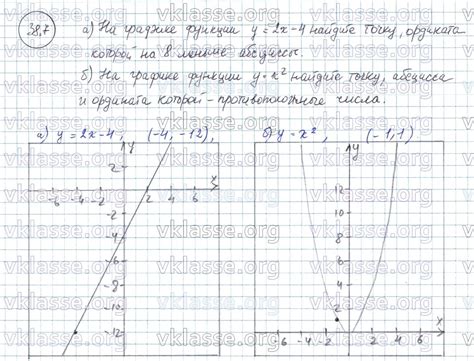 38.7
а) На графике функции y = 2x - 4 найдите точку, ордината
которой на 8 меньше абсциссы.
б) На графике функции y = x² найдите точку, абсцисса
и ордината которой - противоположные числа.
а) y = 2x - 4, (-4, -12), б) y = x², (-1, 1)
y
2
x
-6 -4 -2 2 4 6
-2
-4
-6
-8
-10
-12
y
12
10
8
6
4
2
x
-6 -4 -2 2 4 6
vklasse.org